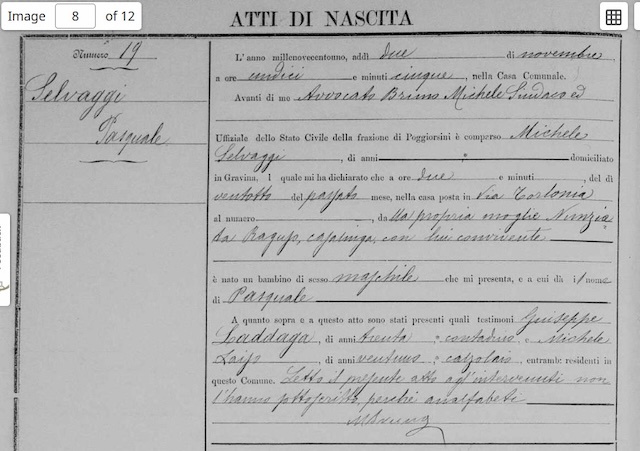 Image 8 of 12
ATTI DI NASCITA
Numero 19
Selvaggi
Pasquale
L'anno millenovecentonno, addì due di novembre
a ore undici e minuti cinque, nella Casa Comunale.
Avanti di me Avvocato Bruno Michele Sindaco ed
Uffiziale dello Stato Civile della frazione di Poggiorsini è comparso Michele
Selvaggi, di anni domiciliato
in Gravina. l quale mi ha dichiarato che a ore due e minuti, del dì
ventotto del passato mese, nella casa posta in Via Tortonia
al numero, da lla propria moglie Nunzia
ta Raguso, casalinga, con lui convivente
è nato un bambino di sesso maschile che mi presenta, e a cui dà il nome
di Pasquale
A quanto sopra e a questo atto sono stati presenti quali testimoni Giuseppe
Laddaga, di anni trenta contadino, e Michele
di anni ventuno calzolaio, entrambi residenti in
questo Comune. Letto il presente atto agl'intervenuti non
l'hanno sottoscritto, perchè analfabeti
MBruno